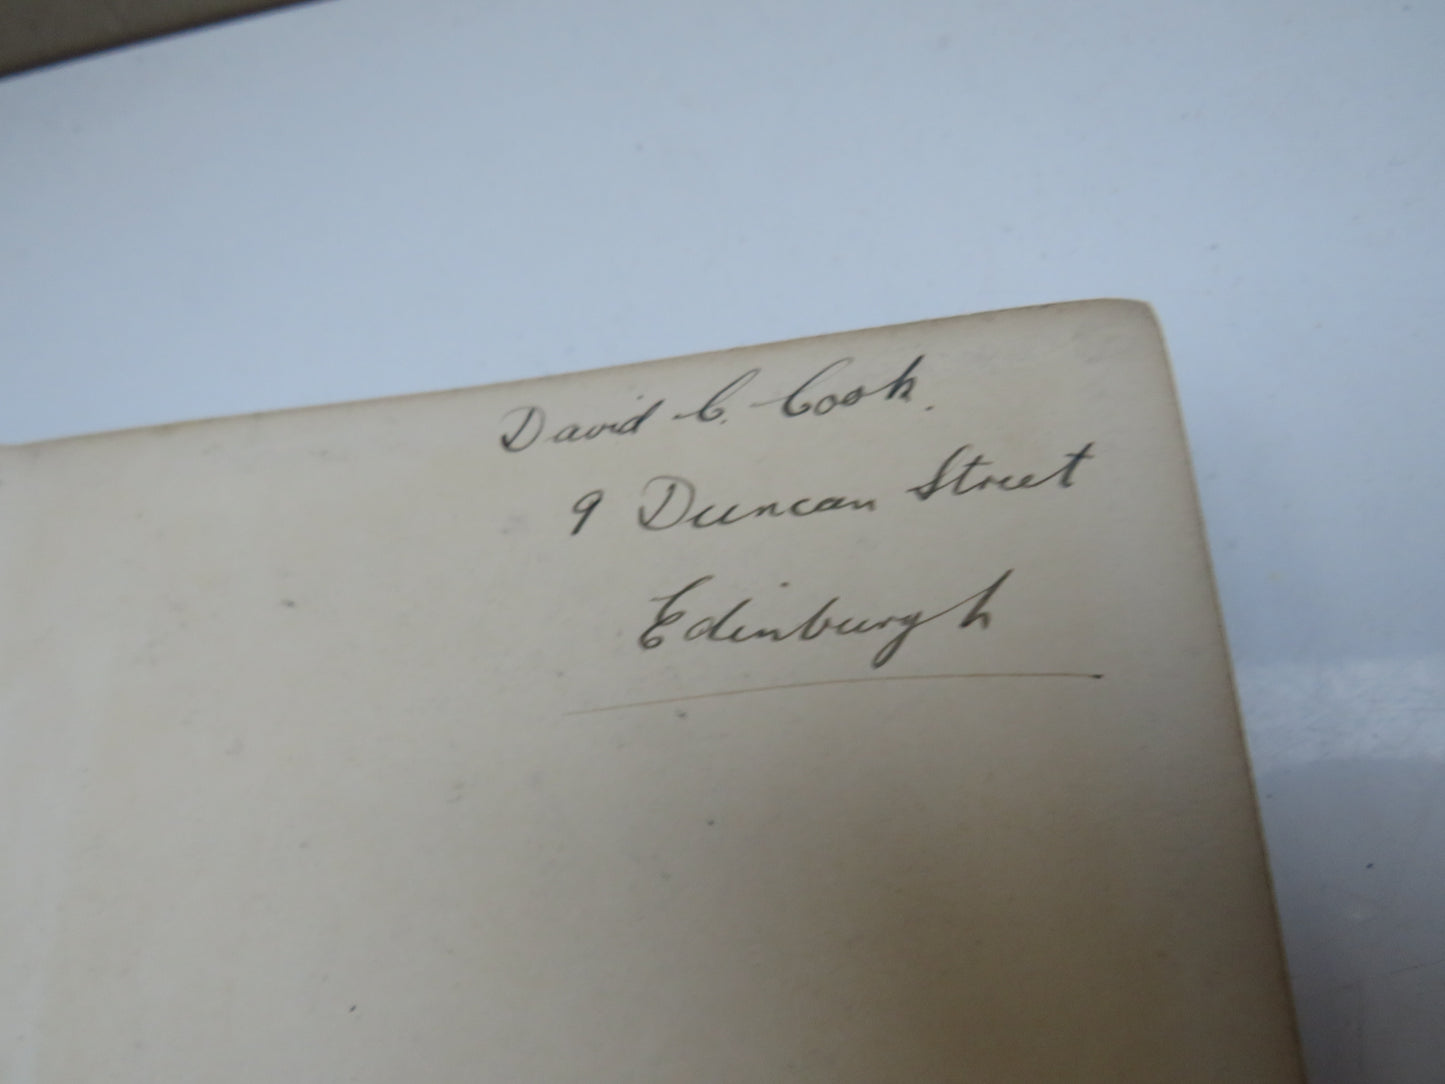 David C. Cook.
9 Duncan Street
Edinburgh